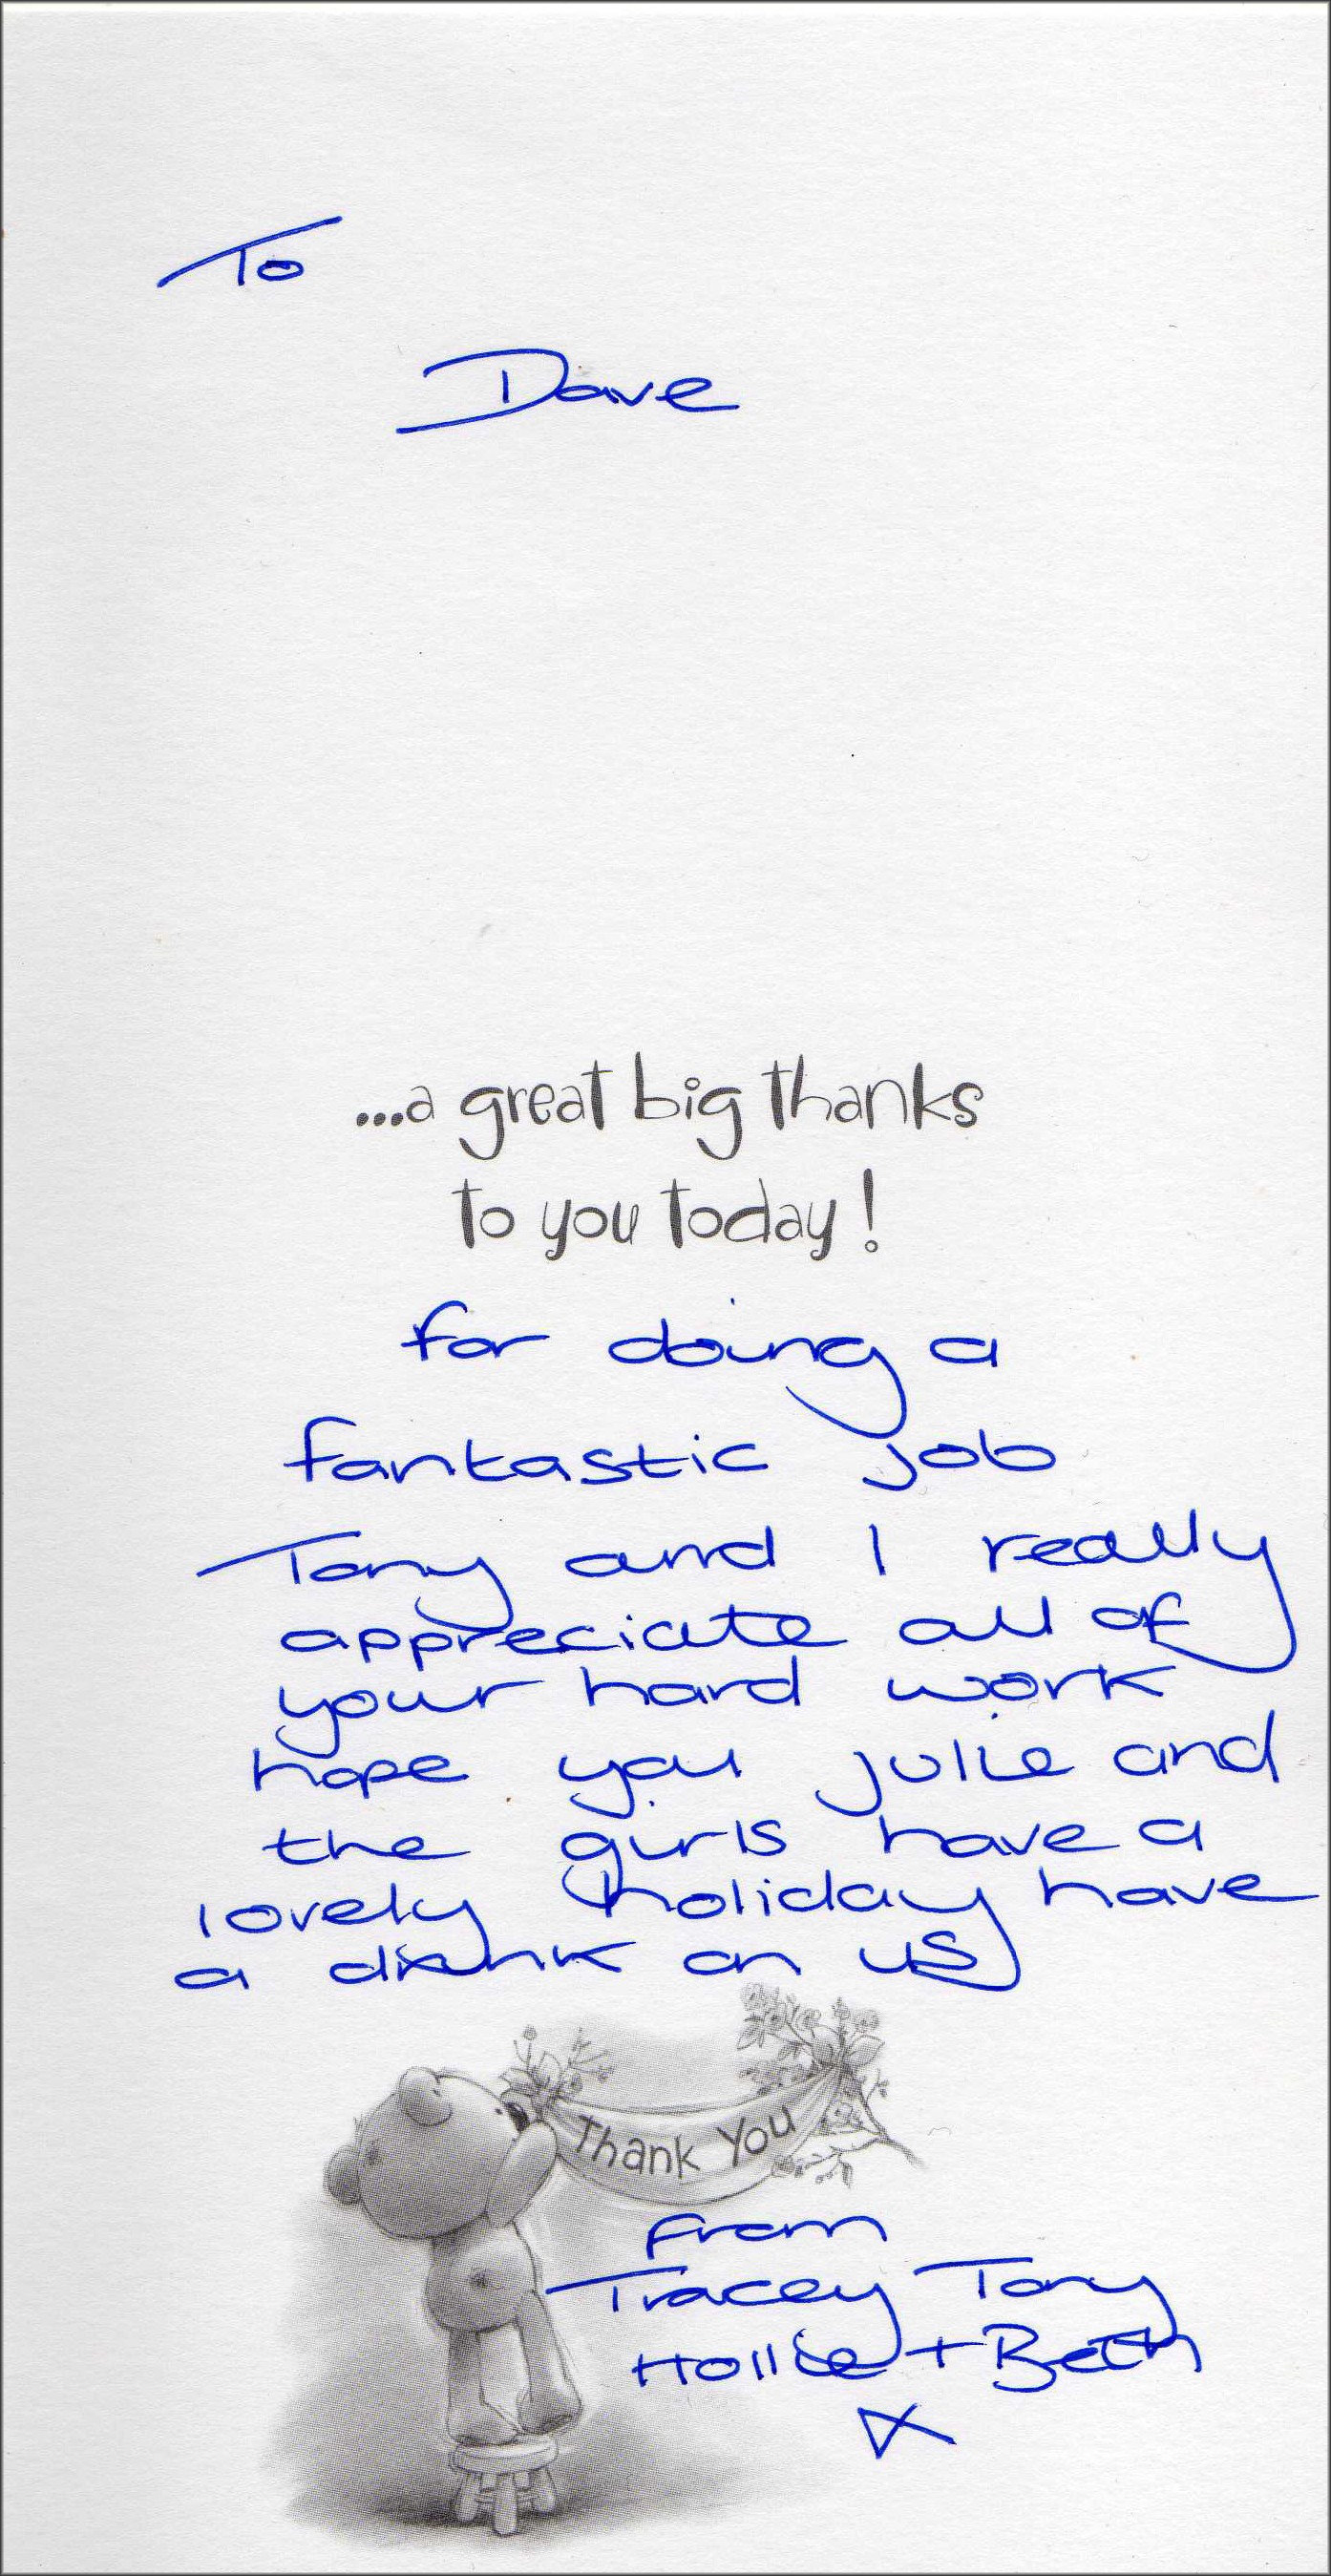 To
Dave
...a great big thanks
to you today!
for doing a
fantastic job
Tony and I really
appreciate all of
your hard work
hope you julie and
the girls have a
lovely holiday have
a drink on us
Thank You
from
Tracey Tony
Hollie + Beth
X